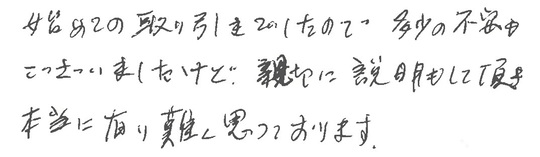 始めての取り引きでしたので 多少の不安も
ございましたけど、親切に説明もして頂き
本当に有り難く思っております。